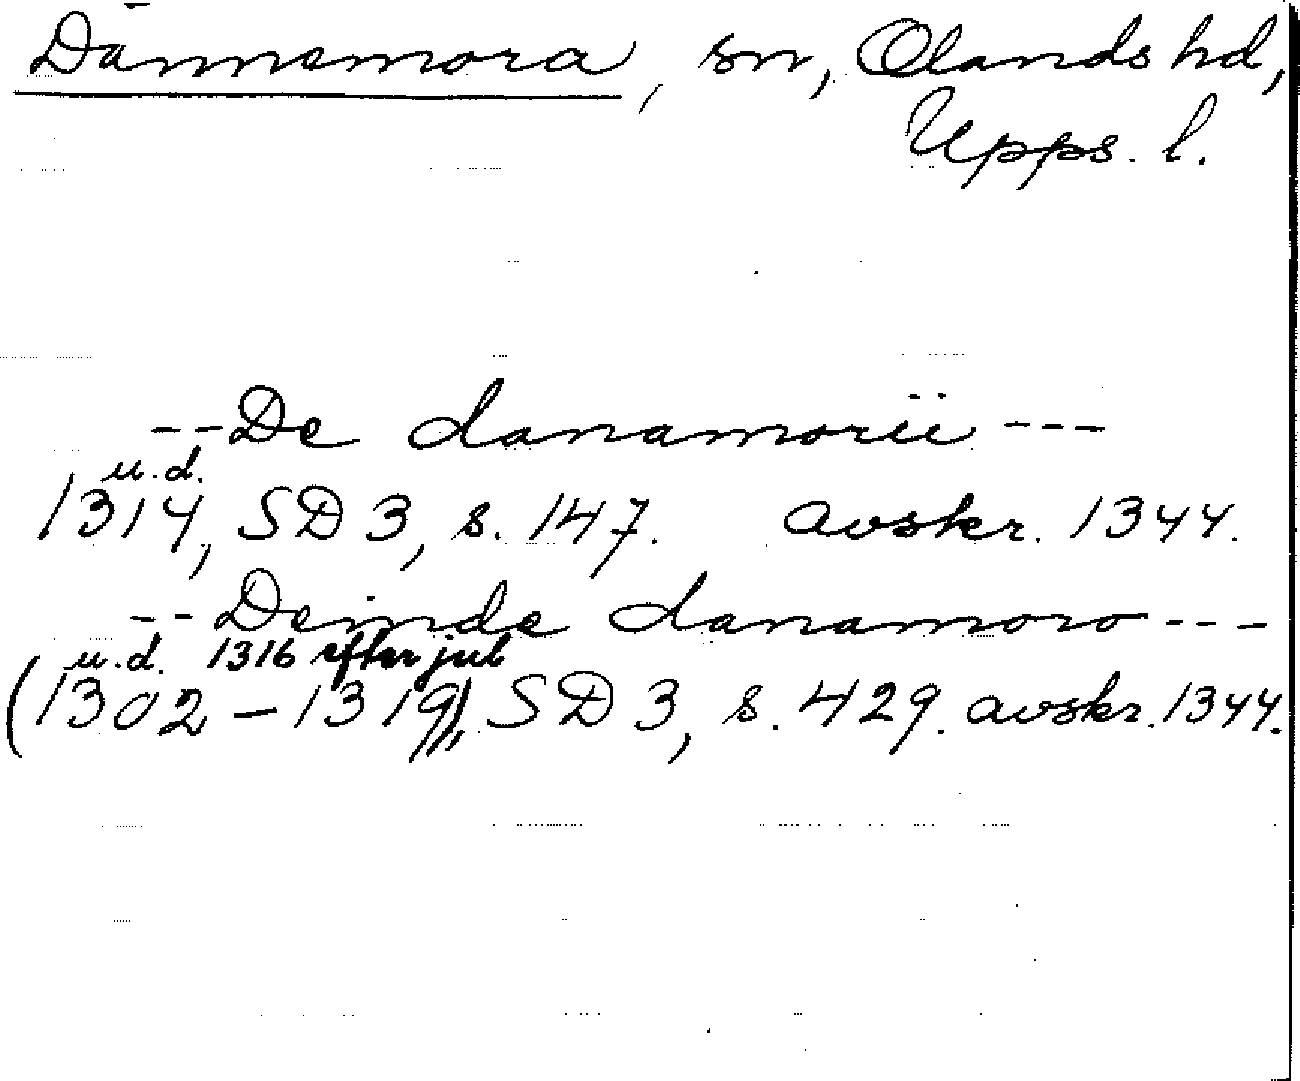 Dannemora, sn, Olands hd,
Upps. l.
--De danamorii---
u.d.
1314, SD 3, s. 147. avskr. 1344.
--Deinde danamoro---
u.d. 1316 efter juli
(1302-1319), SD 3, s. 429. avskr. 1344.